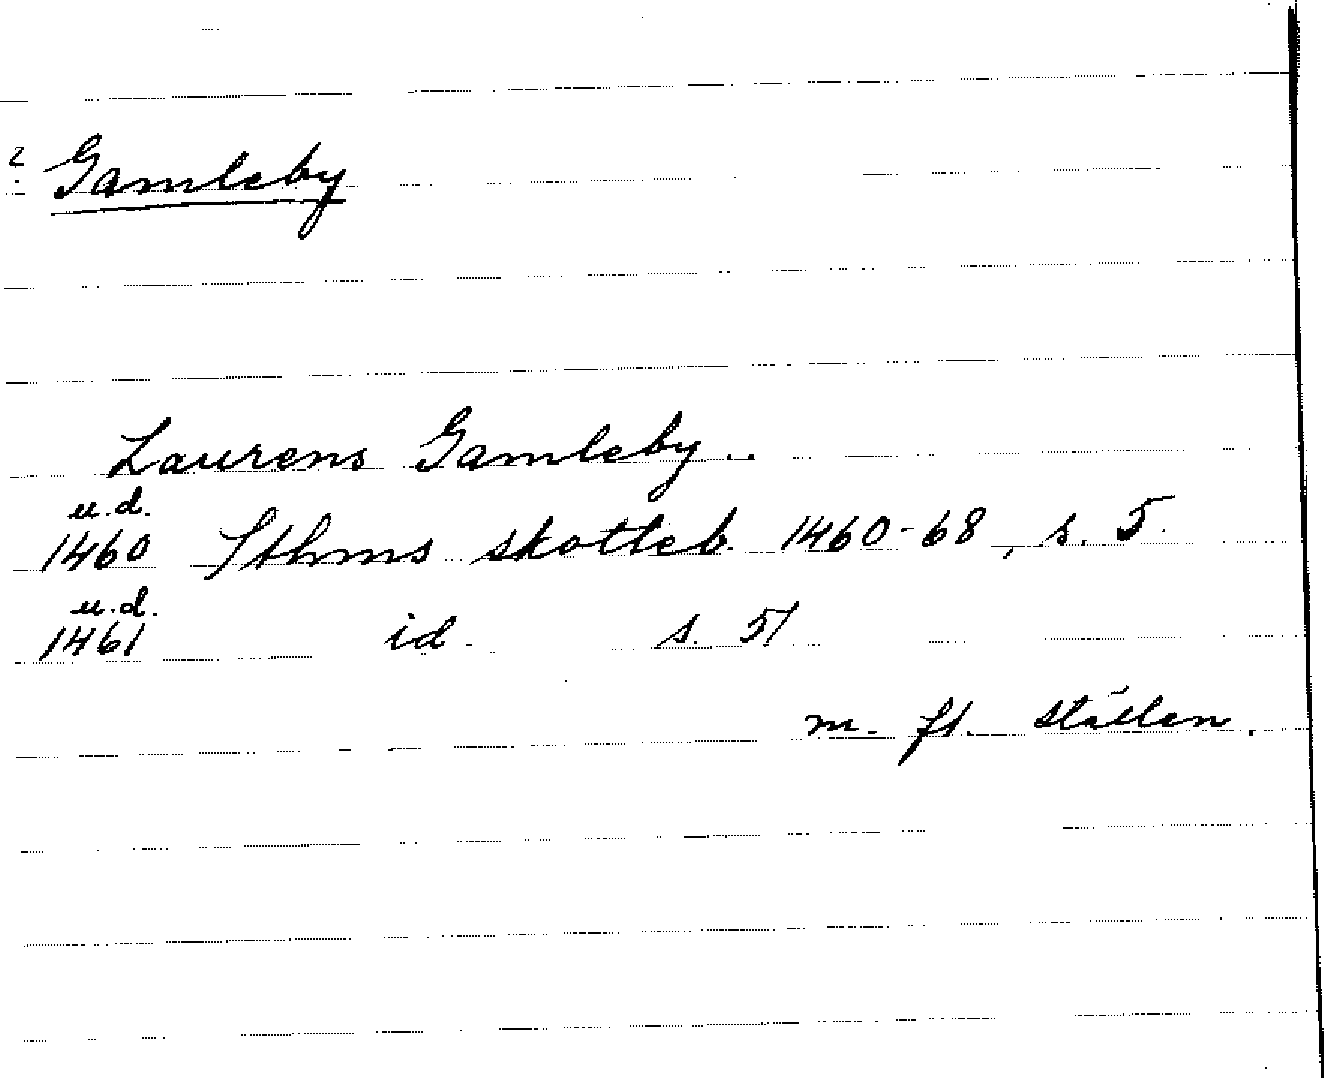 ? Gamleby
Laurens Gamleby..
u.d.
1460 Sthms skotteb. 1460-68, s. 5.
u.d.
1461 id. s. 51
m. fl. ställen.